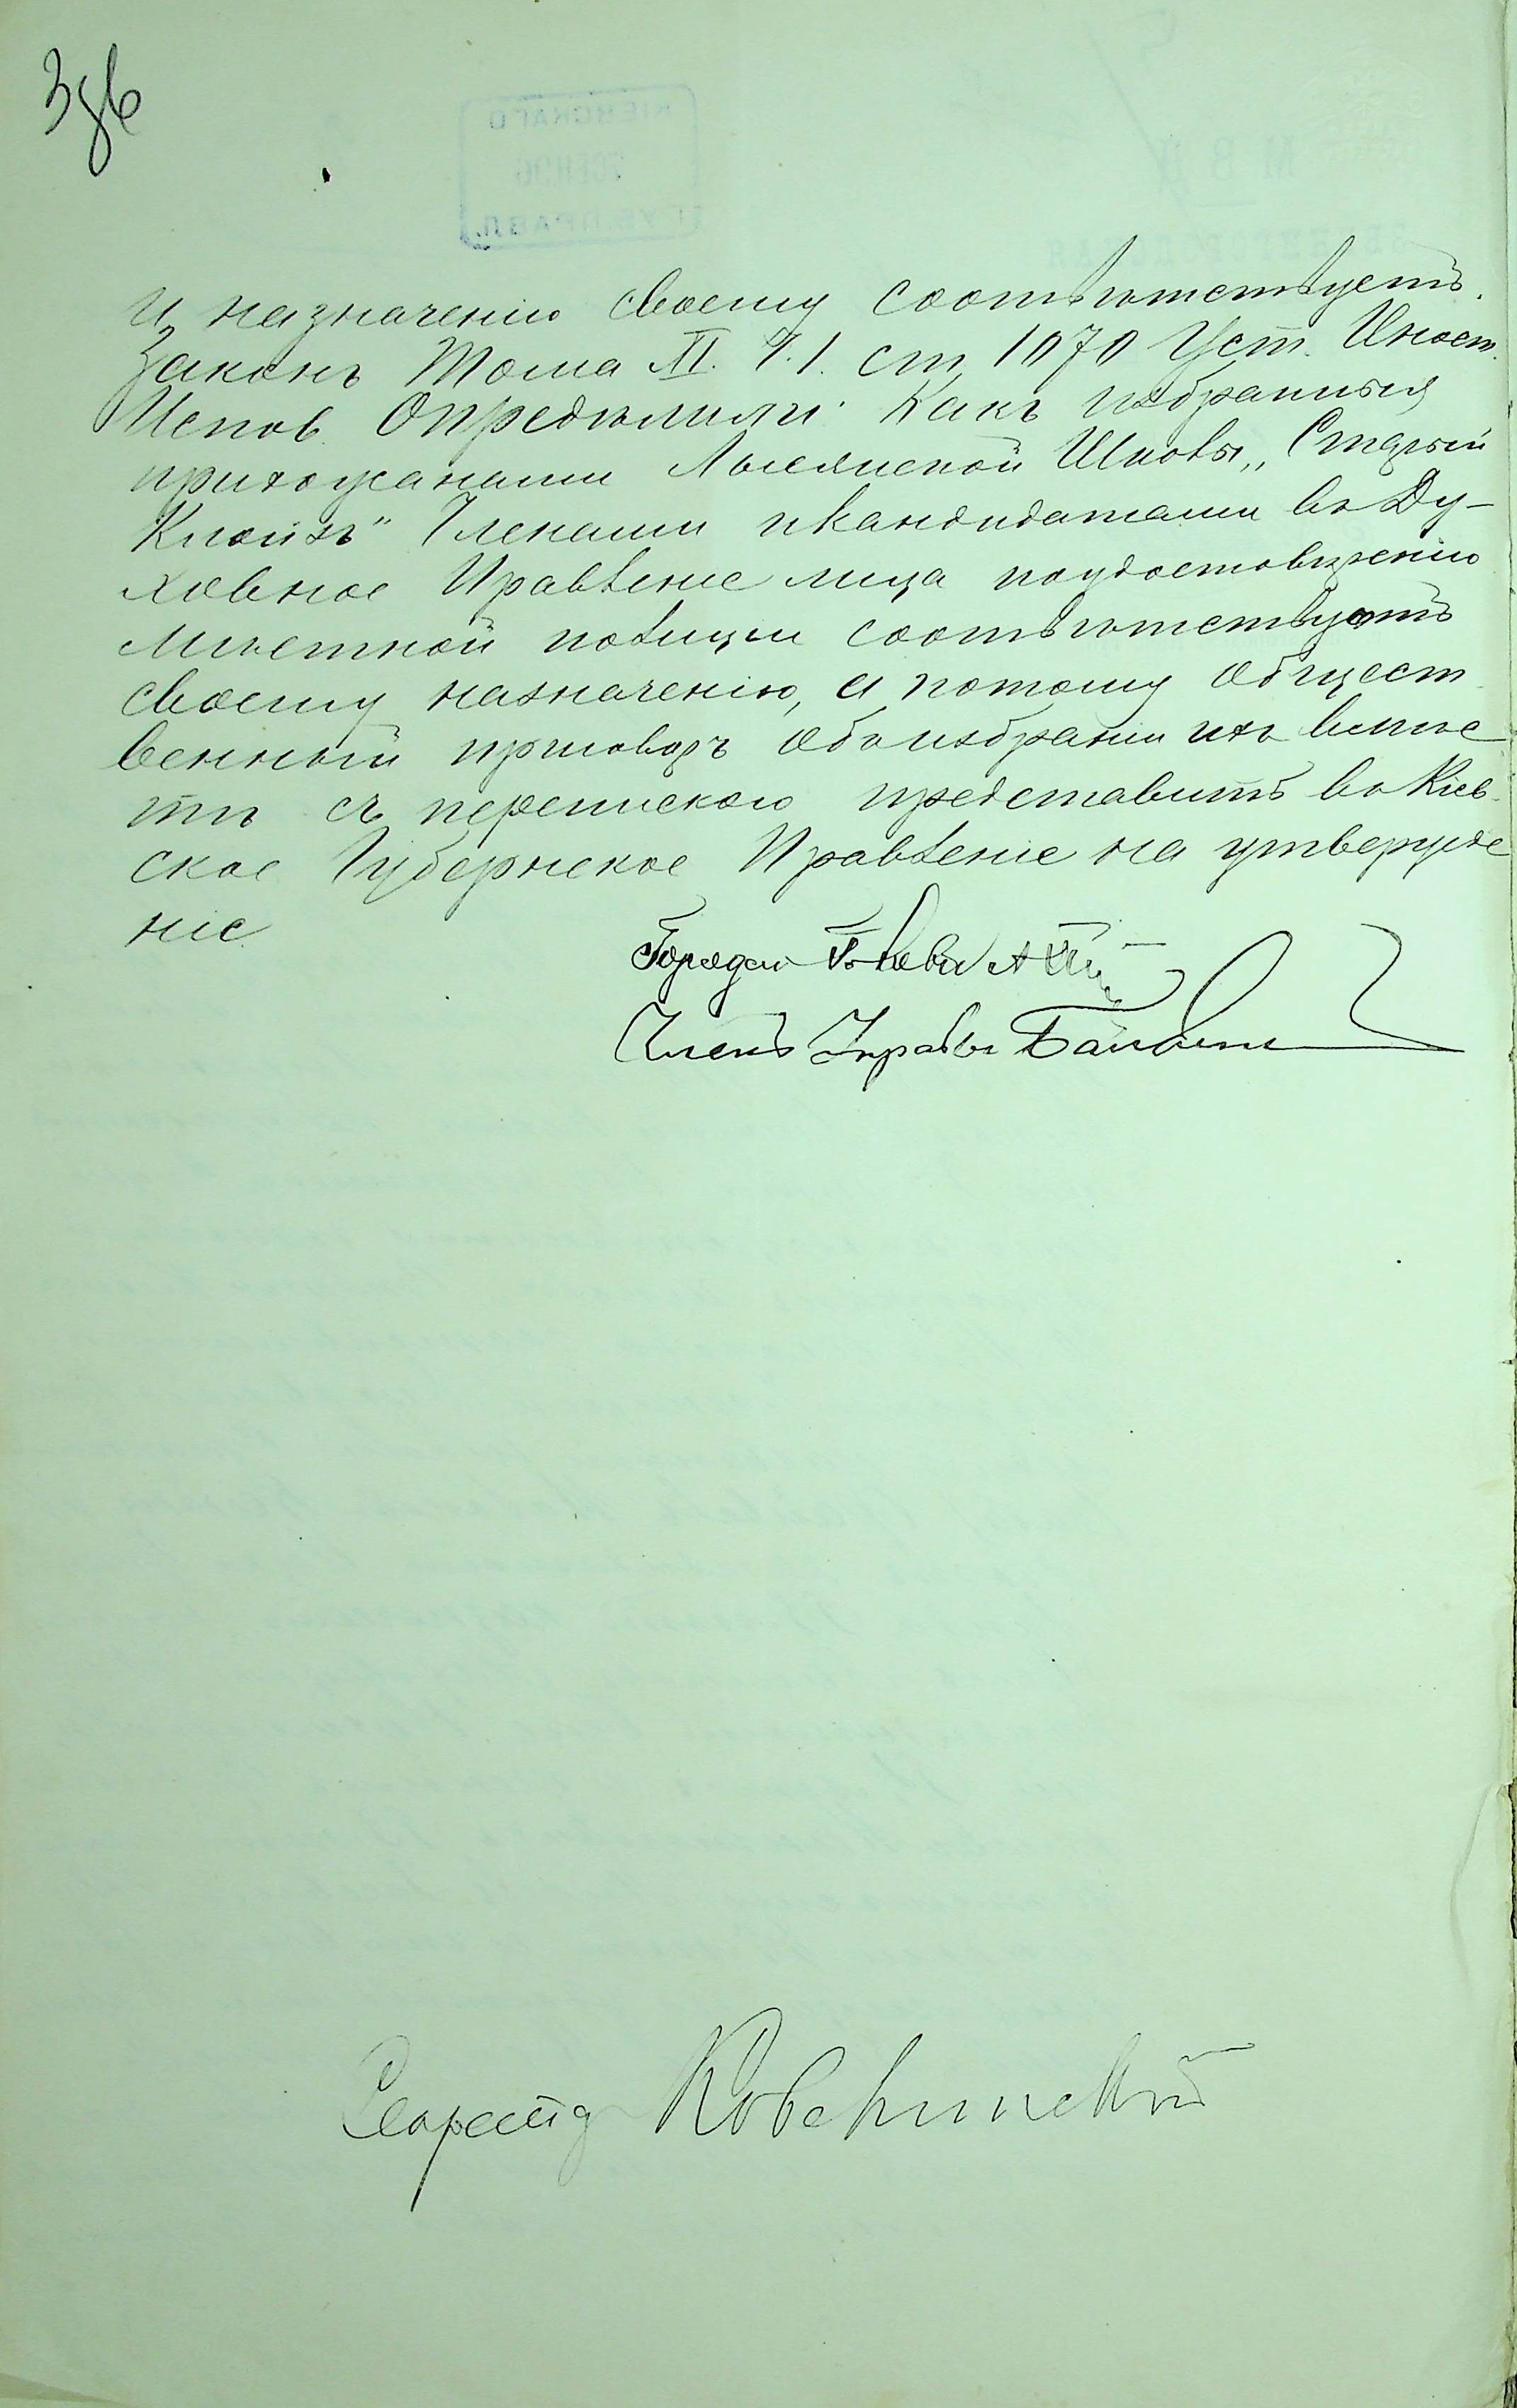 и назначенію своему соотвѣтствуетъ.
Законъ Тома XI. Ч. 1. ст 1070 Уст. Иност.
Испов. Опредѣлили: Какъ избранныя
прихожанами Лысянской Школы „Старый
Клойзъ" Членами и кандидатами въ Ду-
ховное Правленіе лица по удостовѣренію
мѣстной полиціи соотвѣтствуютъ
своему назначенію, а потому общест
венный приговоръ объ избраніи ихъ вмѣс
тѣ съ перепискою представить въ Кіев-
ское Губернское Правленіе на утвержде
ніе.
Городской Голова
Членъ Управы
Секретарь